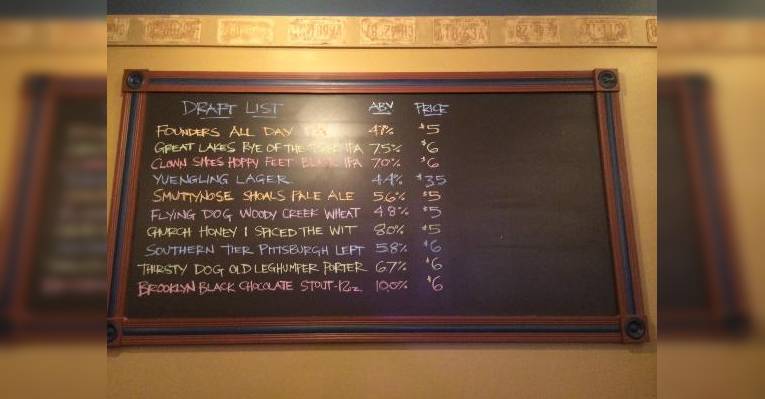 DRAFT LIST ABV PRICE
FOUNDERS ALL DAY 47% $5
GREAT LAKES RYE OF THE IPA 75% $6
CLOWN SHOES HOPPY FEET BLACK IPA 70% $6
YUENGLING LAGER 44% $35
SMUTTYNOSE SHOALS PALE ALE 56% $5
FLYING DOG WOODY CREEK WHEAT 48% $5
CHURCH HONEY I SPICED THE WIT 80% $5
SOUTHERN TIER PITTSBURGH LEFT 58% $6
THIRSTY DOG OLD LEGHUMPER PORTER 67% $6
BROOKLYN BLACK CHOCOLATE STOUT-12z. 100% $6